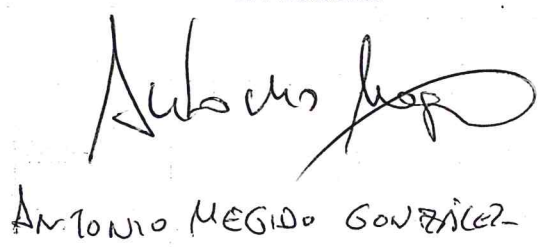 Antonio Meg
ANTONIO MEGIDO GONZÁLEZ